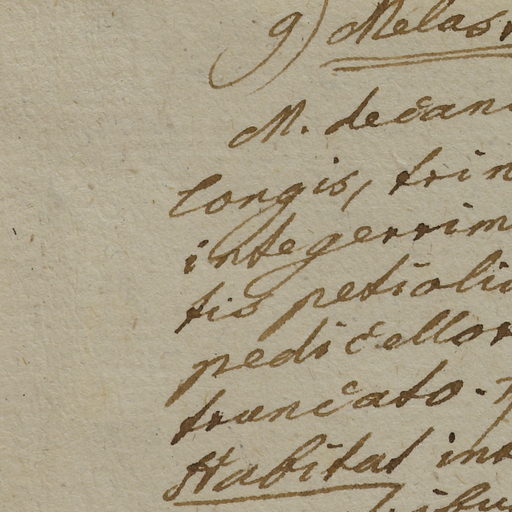 9) Melas
M. decan
longis, trin
integerrim
tis petioli
pedicellor
truncato.
Habitat int